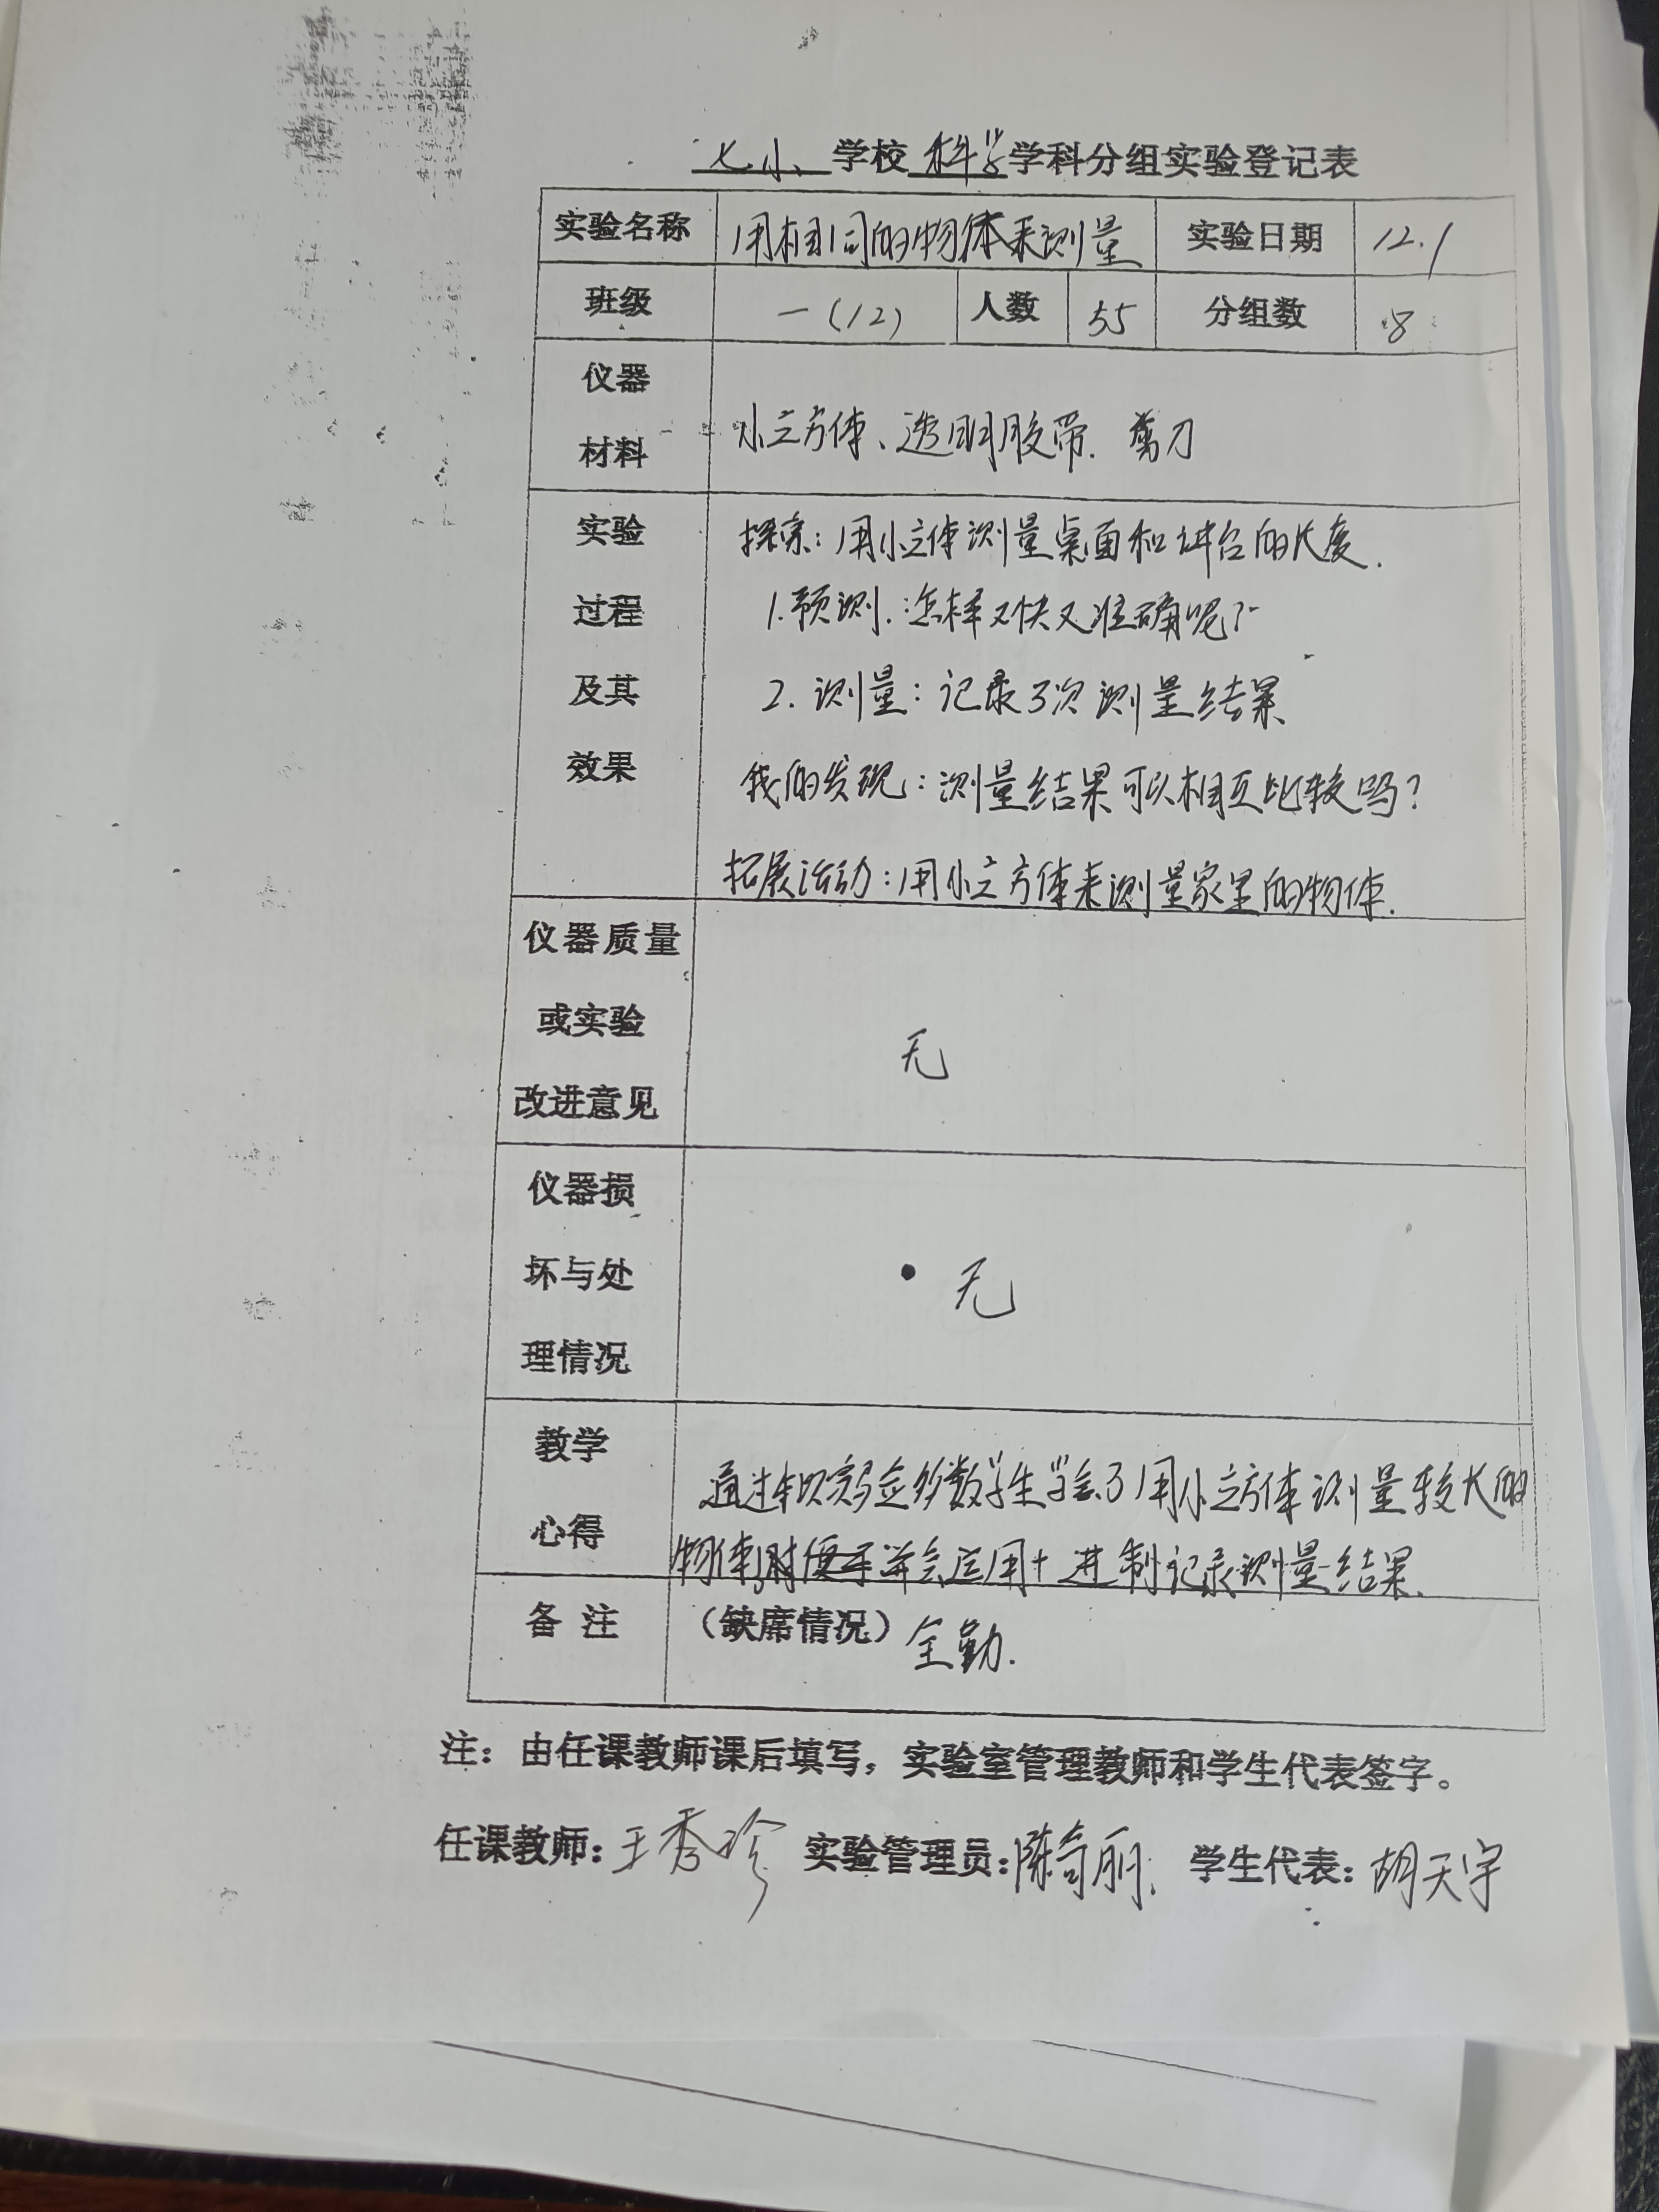 七小 学校 科学 学科分组实验登记表
实验名称 用相同的物体来测量 实验日期 12.1
班级 一(12) 人数 55 分组数 8
仪器
材料 小立方体、透明胶带. 剪刀
实验 探索：用小立体测量桌面和讲台的长度.
过程 1.预测.：怎样又快又准确呢？
及其 2. 测量：记录了次测量结果
效果 我的发现：测量结果可以相互比较吗？
拓展活动：用小立方体来测量家里的物体.
仪器质量
或实验 无
改进意见
仪器损
坏与处 无
理情况
教学 通过 多数学生学会了用小立方体测量较长的
心得 物体 并会应用十进制记录测量结果.
备 注 （缺席情况）全勤.
注：由任课教师课后填写，实验室管理教师和学生代表签字。
任课教师：王秀珍 实验管理员：陈奇丽 学生代表：胡天宇